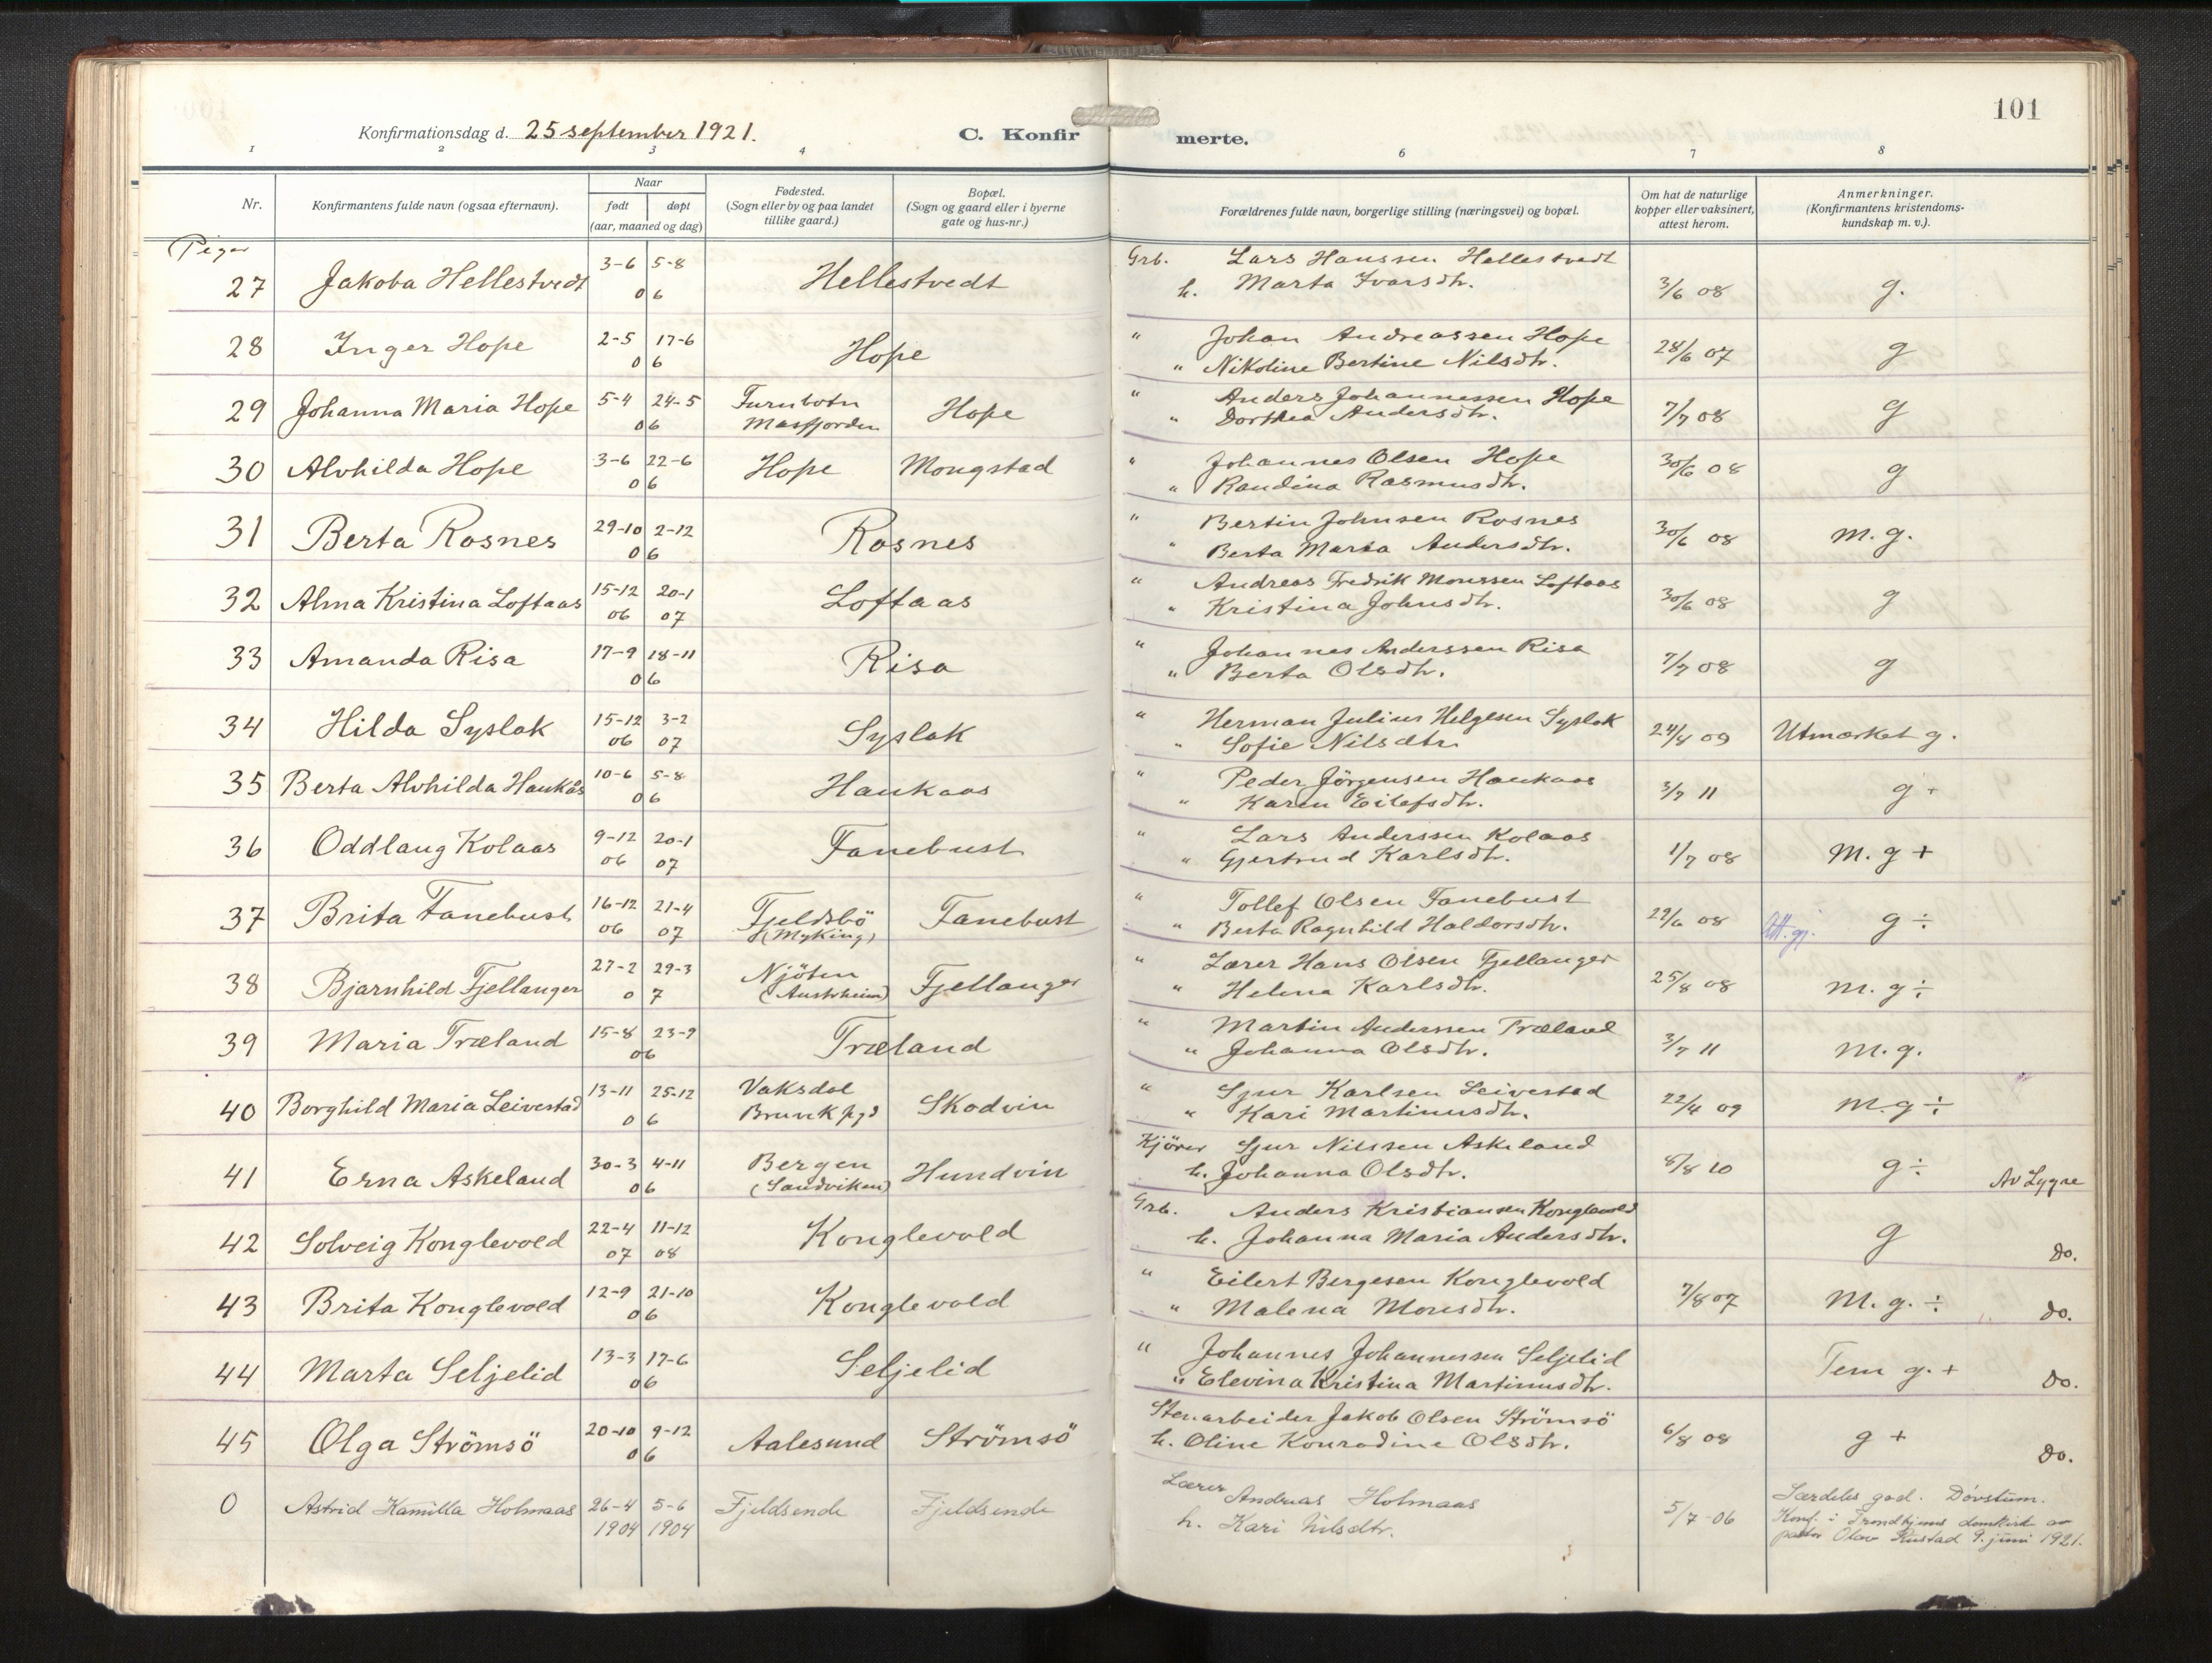 101
Konfirmationsdag d. 25 september 1921. C. Konfirmerte.
1 2 3 4 6 7 8
Nr. Konfirmantens fulde navn (ogsaa efternavn). Naar født døpt (aar, maaned og dag) Fødested. (Sogn eller by og paa landet tillike gaard.) Bopæl. (Sogn og gaard eller i byerne gate og hus-nr.) Forældrenes fulde navn, borgerlige stilling (næringsvei) og bopæl. Om hat de naturlige kopper eller vaksinert, attest herom. Anmerkninger. (Konfirmantens kristendoms-kundskap m. v.).
Piger
27 Jakoba Hellestvedt 3-6 5-8 06 Hellestvedt Grb. Lars Hanssen Hellestvedt h. Marta Ivarsdtr. 3/6 08 g.
28 Inger Hope 2-5 17-6 06 Hope " Johan Andreassen Hope " Nikoline Bertine Nilsdtr. 28/6 07 g
29 Johanna Maria Hope 5-4 24-5 06 Furubotn Masfjorden Hope " Anders Johannessen Hope " Dorthea Andersdtr. 7/7 08 g
30 Alvhilda Hope 3-6 22-6 06 Hope Mongstad " Johannes Olsen Hope " Randina Rasmusdtr. 30/6 08 g
31 Berta Rosnes 29-10 2-12 06 Rosnes " Bertin Johnsen Rosnes " Berta Maria Andersdtr. 30/6 08 m. g.
32 Alma Kristina Loftaas 15-12 06 20-1 07 Loftaas " Andreas Fredrik Monssen Loftaas " Kristina Johnsdtr. 30/6 08 g
33 Amanda Risa 17-9 18-11 06 Risa " Johannes Anderssen Risa " Berta Olsdtr. 7/7 08 g
34 Hilda Syslak 15-12 06 3-2 07 Syslak " Herman Julius Helgesen Syslak " Sofie Nilsdtr. 24/4 09 Utmærket g.
35 Berta Alvhilda Haukås 10-6 5-8 06 Haukaas " Peder Jörgensen Haukaas " Karen Eilefsdtr. 3/7 11 g +
36 Oddlaug Kolaas 9-12 06 20-1 07 Fanebust " Lars Anderssen Kolaas " Gjertrud Karlsdtr. 1/7 08 M. g +
37 Brita Fanebust 16-12 06 21-4 07 Fjeldsbö (Myking) Fanebust " Tollef Olsen Fanebust " Berta Ragnhild Haldorsdtr. 29/6 08 Att. gj. g ÷
38 Bjarnhild Fjellanger 27-2 29-3 07 Njöten (Austrheim) Fjellanger " Lærer Hans Olsen Fjellanger " Helena Karlsdtr. 25/8 08 m. g ÷
39 Maria Træland 15-8 23-9 06 Træland " Martin Anderssen Træland " Johanna Olsdtr. 3/7 11 M. g.
40 Borghild Maria Leivestad 13-11 25-12 06 Vaksdal Bruvik pgd Skodvin " Sjur Karlsen Leivestad " Kari Martinusdtr. 22/4 09 M. g ÷
41 Erna Askeland 30-3 4-11 06 Bergen (Sandviken) Hundvin Kjörer Sjur Nilssen Askeland h. Johanna Olsdtr. 8/8 10 g ÷ Av Lygre
42 Solveig Konglevold 22-4 07 11-12 08 Konglevold Grb. Anders Kristiansen Konglevold h. Johanna Maria Andersdtr. g do.
43 Brita Konglevold 12-9 21-10 06 Konglevold " Eilert Bergesen Konglevold " Malena Monsdtr. 7/8 07 M. g. ÷ do.
44 Marta Seljelid 13-3 17-6 06 Seljelid " Johannes Johannessen Seljelid " Elevina Kristina Martinusdtr. Tem g. + do.
45 Olga Strömsö 20-10 9-12 06 Aalesund Strömsö Stenarbeider Jakob Olsen Strömsö h. Oline Konradine Olsdtr. 6/8 08 g + do.
0 Astrid Kamilla Holmaas 26-4 1904 5-6 1904 Fjeldsende Fjeldsende Lærer Andreas Holmaas h. Kari Nilsdtr. 5/7 06 Særdeles god. Døvstum. Konf. i Trondhjems domkirke av pastor Olav Rustad 9. juni 1921.